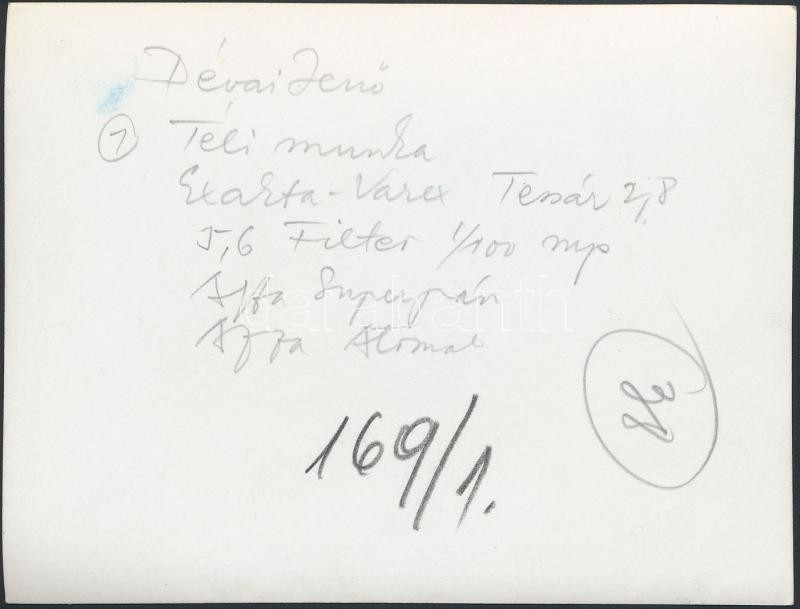 Dévai Jenő
1 Téli munka
Exakta-Varex Tessár 2,8
5,6 Filter 1/100 mp
Agfa Superpán
Agfa Atomal
darabanth
38
169/1.